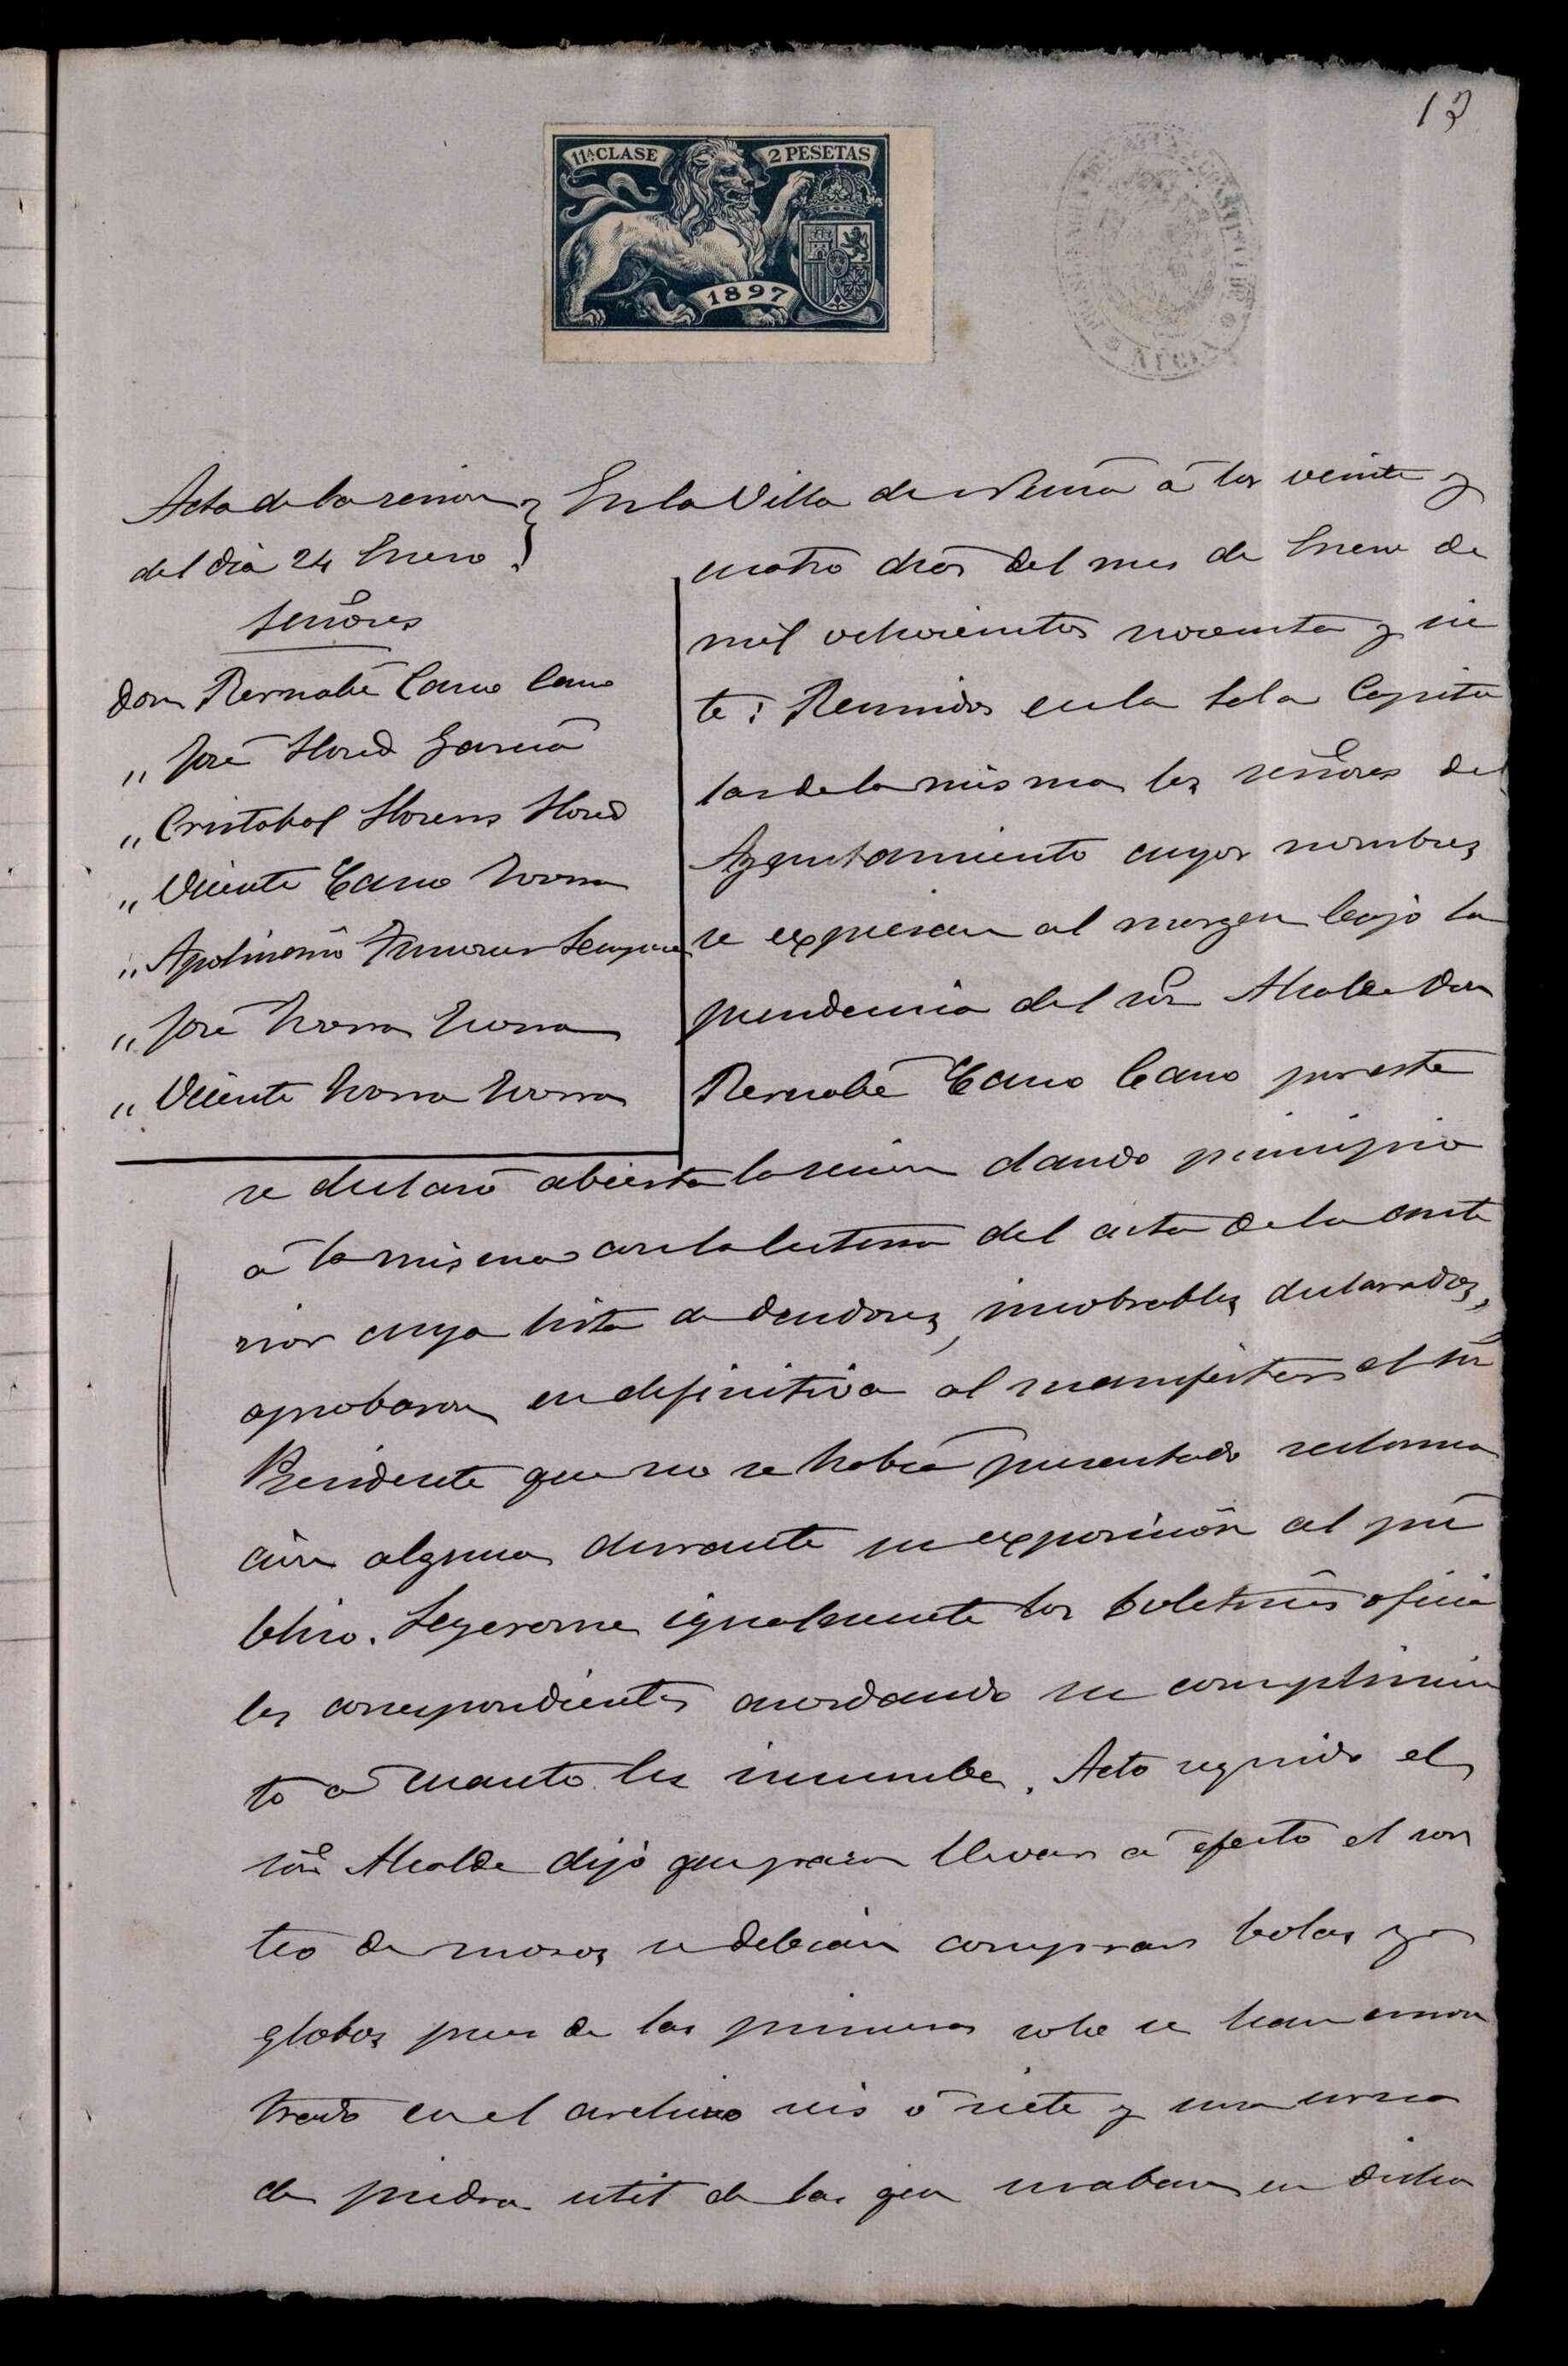 13
11ª CLASE
2 PESETAS
1897
NUCIA
Acta de la sesion
del dia 24 Enero
Señores
Don Bernabé Cano Cano
" José Llored García
" Cristobal Llorens Llored
" Vicente Cano Ivorra
" Apolinario
" José Ivorra Ivorra
" Vicente Ivorra Ivorra
En la Villa de Nucia á los veinte y
cuatro dias del mes de Enero de
mil ochocientos noventa y sie
te: Reunidos en la Sala Capitu
lar de la misma los señores del
Ayuntamiento cuyos nombres
se expresan al margen bajo la
presidencia del Sor Alcalde Don
Bernabé Cano Cano por este
se declaró abierta la sesion dando principio
á la misma con la lectura del acta de la ante
rior cuya lista de deudores, incobrables declarados,
aprobaron en definitiva al manifestar el Sor
Presidente que no se habia presentado reclama
ción alguna durante su exposición al pú
blico. Leyeronse igualmente los boletines oficia
les correspondientes acordando su cumplimien
to á cuanto les incumbe. Acto seguido el
Sor Alcalde dijó que para llevar á efecto el sor
teo de mozos se debian comprar bolas y
globos pues de las primeras solo se han encon
trado en el archivo seis ó siete y una urna
de piedra util de las que usaban en dicho